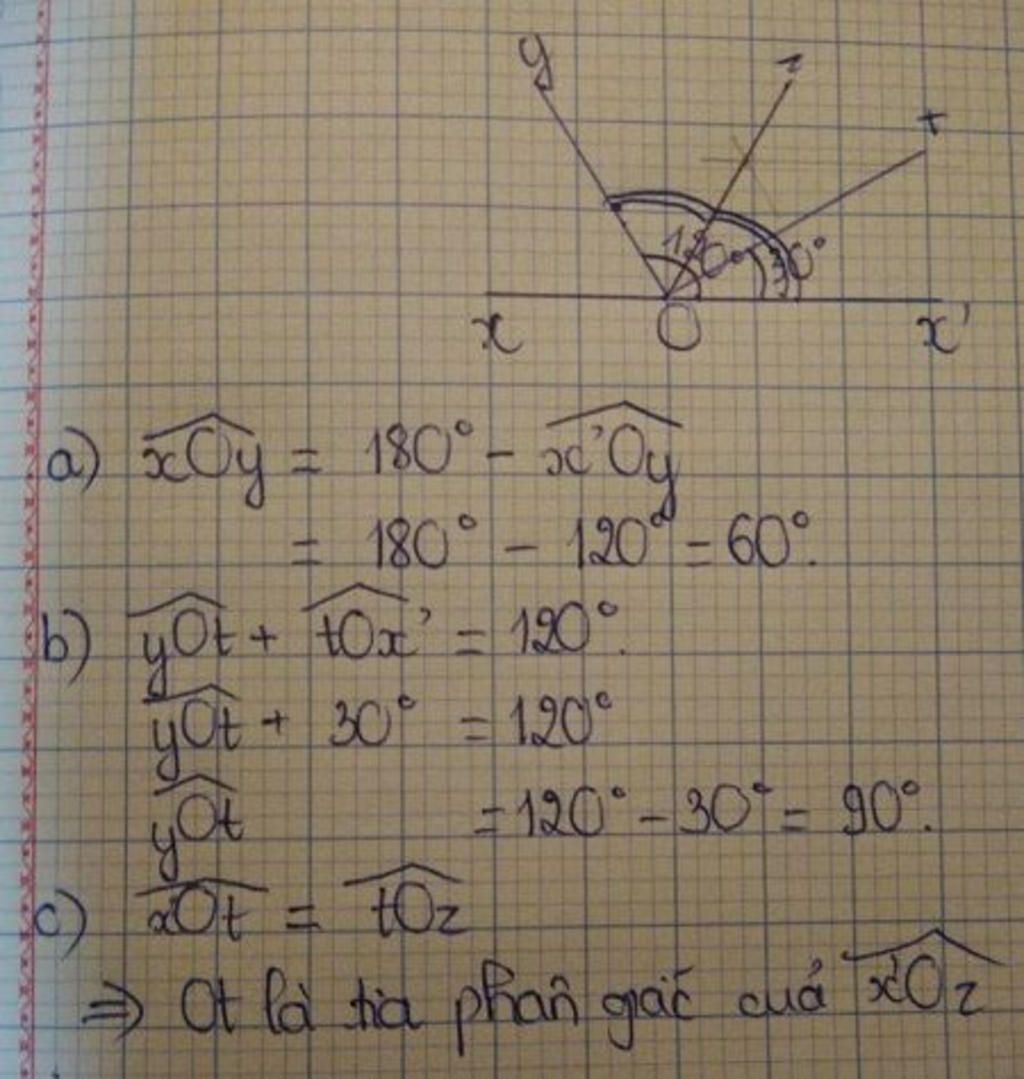 y z t
120° 30°
x O x'
a) xOy = 180° - x'Oy
= 180° - 120° = 60°.
b) yOt + tOx' = 120°.
yOt + 30° = 120°
yOt = 120° - 30° = 90°.
c) xOt = tOz
⇒ Ot là tia phân giác của x'Oz